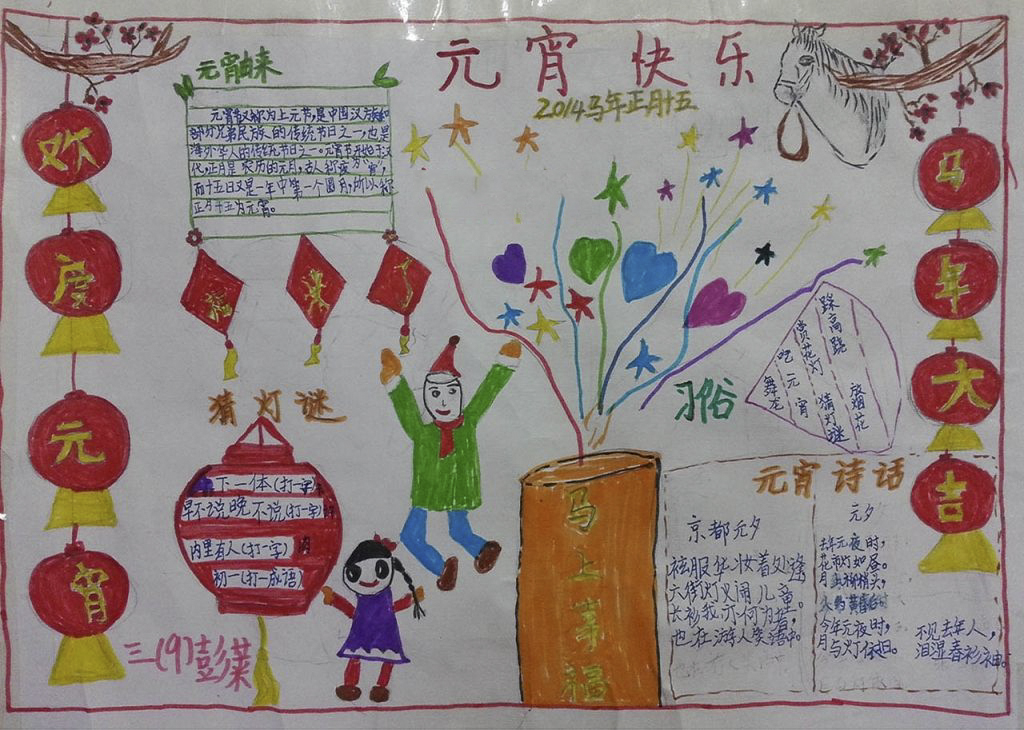 元宵快乐
2014马年正月十五
欢
度
元
宵
马
年
大
吉
元宵由来
元宵节又称为上元节,是中国汉族和
部分兄弟民族的传统节日之一,也是
海外华人的传统节日之一。元宵节形成于汉
代,正月是农历的元月,古人称夜为"宵",
而十五日又是一年中第一个圆月,所以称
正月十五为元宵。
福
来
了
猜灯谜
下一体(打一字)
早不说晚不说(打一字)
内里有人(打一字)
初一(打一成语)
三(9)彭菜
马
上
享
福
习俗
踩高跷
赏花灯
吃元宵
舞龙
猜灯谜
放烟花
元宵诗话
京都元夕
袨服华妆着处逢
六街灯火闹儿童。
长衫我亦何为者,
也在游人笑语中。
元夕
去年元夜时,
花市灯如昼。
月上柳梢头,
人约黄昏后
今年元夜时,
月与灯依旧。
不见去年人,
泪湿春衫袖。